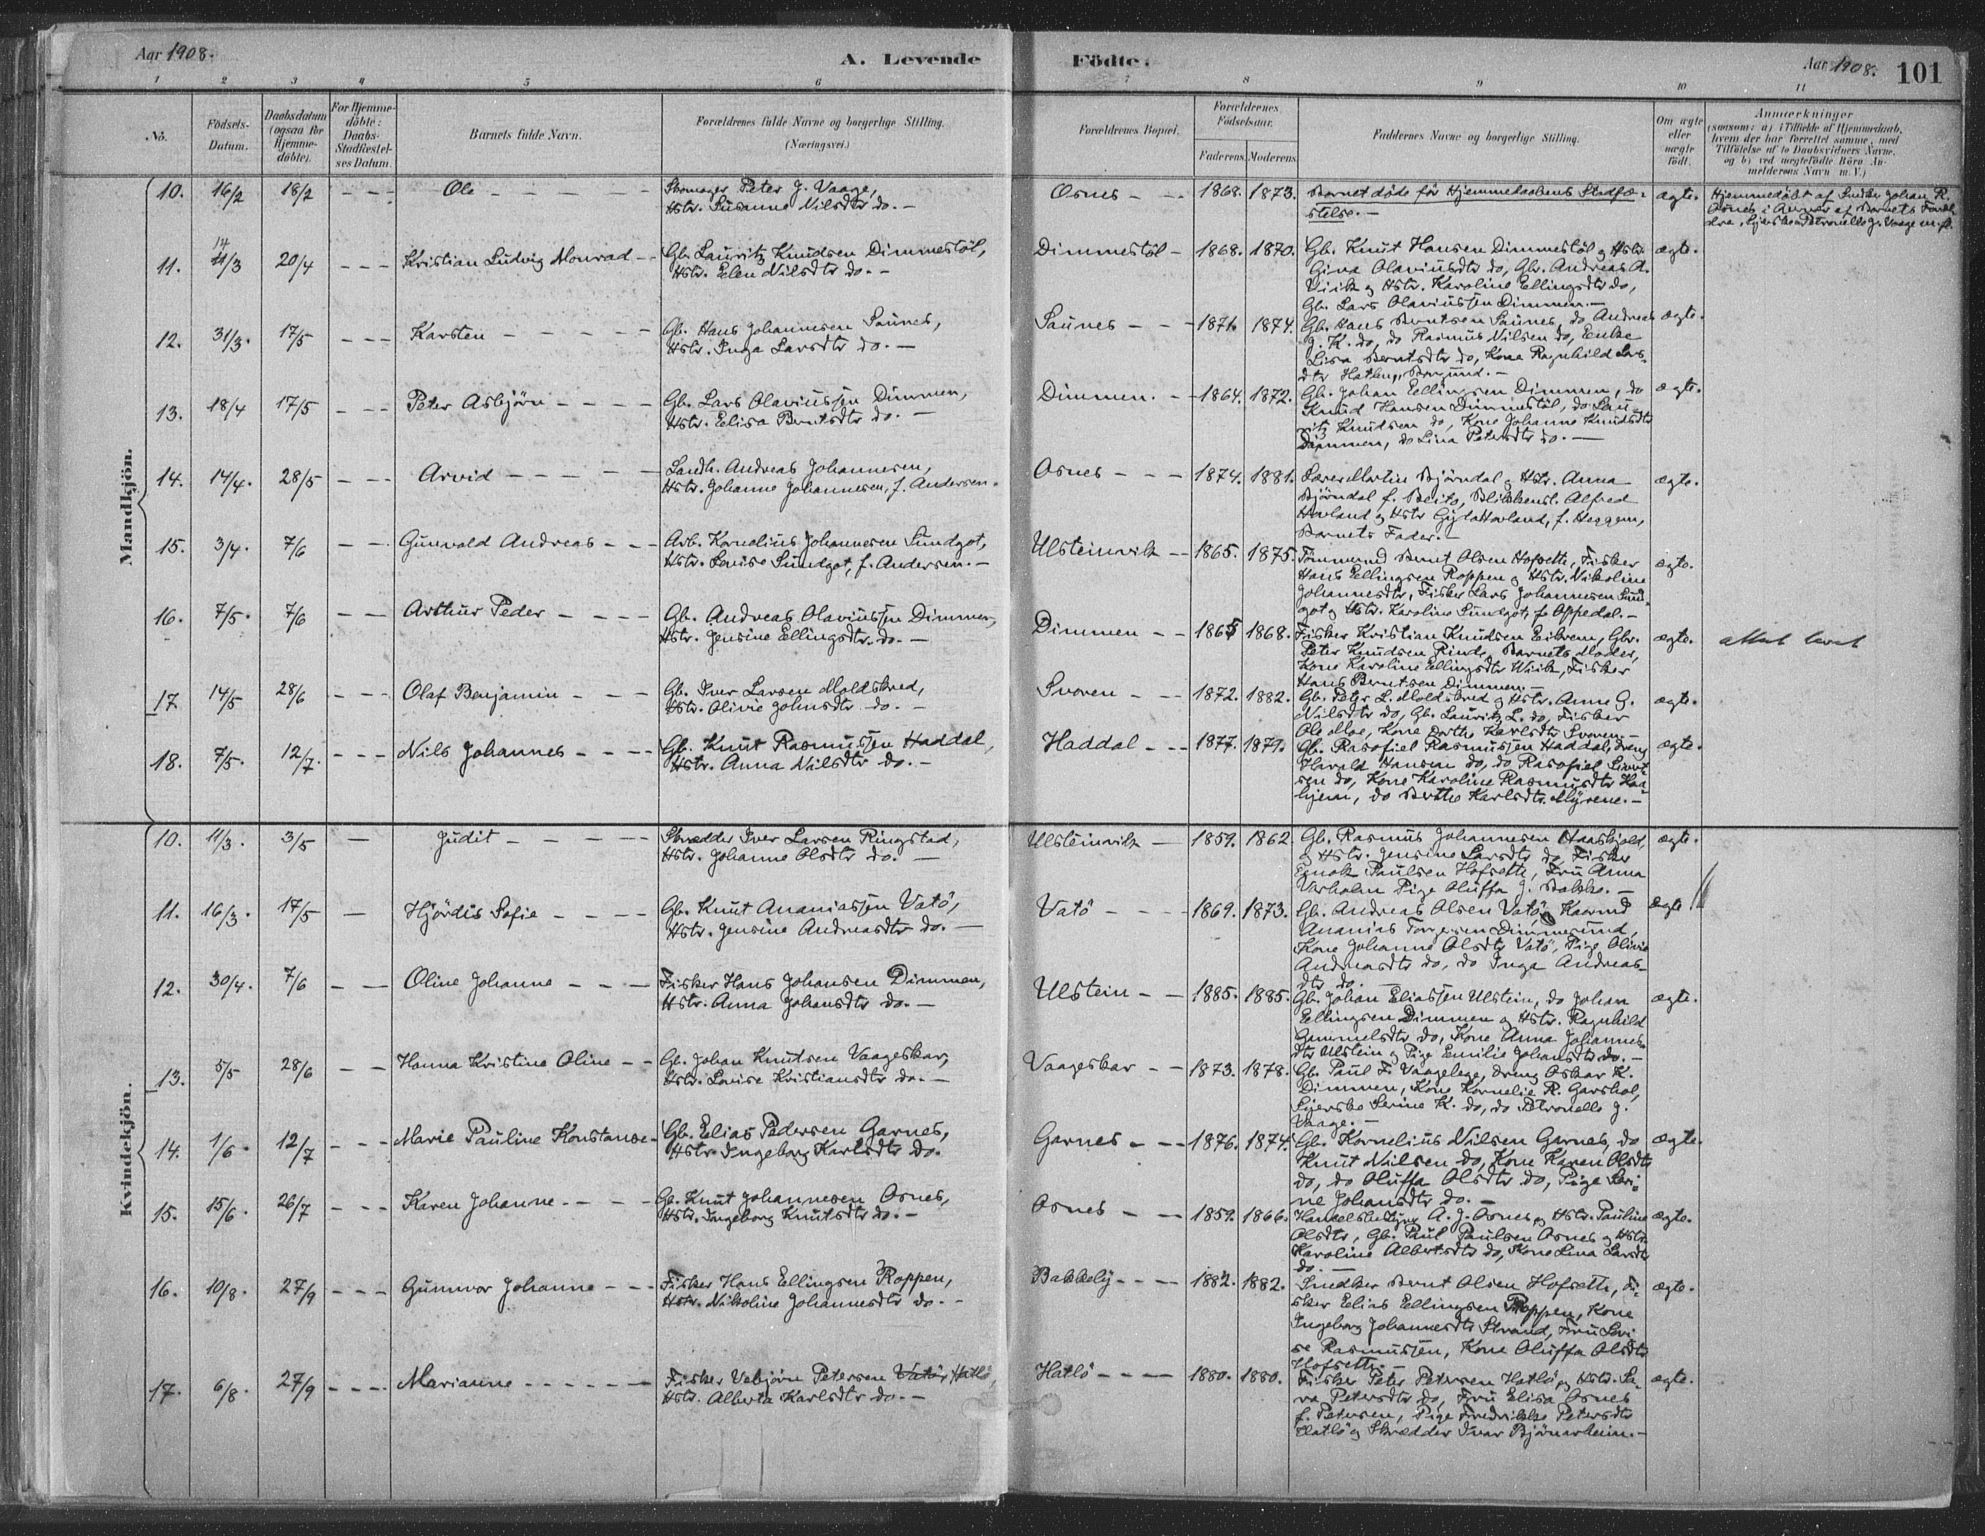 Aar 1908.
A. Levende
Födte.
Aar 1908.
101
1 2 3 4 5 6 7 8 9 10 11
No.
Födsels-Datum.
Daabsdatum (ogsaa for Hjemmedöbte).
For Hjemmedöbte: Daabs-Stadfæstelses Datum.
Barnets fulde Navn.
Forældrenes fulde Navne og borgerlige Stilling.
(Næringsvei.)
Forældrenes Bopæl.
Forældrenes Födselsaar.
Faderens. Moderens.
Faddernes Navne og borgerlige Stilling.
Om ægte eller uægte födt.
Anmærkninger
(saasom: a) i Tilfælde af Hjemmedaab,
hvem der har forrettet samme, med
Tilföielse af to Daabsvidners Navne,
og b) ved uægtefödte Börn Anmelderens Navn m. V.)
Mandkjön.
10. 16/2 18/2 - - - Ole - - - -
Skomager Peter J. Vaage,
Hstr. Susanne Nilsdtr do. -
Osnes - - 1868. 1873.
Barnet döde för Hjemmedaabens Stadfæ-
stelse. -
ægte.
Hjemmedöbt af Snedker Johan R.
Osnes i Nærvær af Barnets Foræl-
dre, Pige Petronelle J. Vaage m. fl.
11. 14/3 20/4 - - - Kristian Ludvig Monrad -
Gb. Lauritz Knudsen Dimmestöl,
Hstr. Elen Nilsdtr do. -
Dimmestöl - 1868. 1870.
Gb. Knut Hansen Dimmestöl og Hstr.
Gina Olaviusdtr do, Gbr. Andreas A.
Viik og Hstr. Karoline Ellingsdtr do,
Gb. Lars Olaviussen Dimmen. -
ægte.
12. 31/3. 17/5 - - - Karsten - - - -
Gb. Hans Johannesen Saunes,
Hstr. Inga Larsdtr do. -
Saunes - - 1871. 1874.
Gb. Hans Berntsen Saunes, do Andreas
J. K. do, do Rasmus Nilsen do, Enke
Lisa Berntsdtr do, Kone Ragnhild Lars-
dtr Hatlen, Borgund. -
ægte.
13. 18/4 17/5 - - - Peter Asbjörn - - - -
Gb. Lars Olaviussen Dimmen,
Hstr. Elisa Berntsdtr do. -
Dimmen. - 1864. 1872.
Gb. Johan Ellingsen Dimmen, do
Knud Hansen Dimmestöl, do Lau-
ritz Knudsen do, Kone Johanne Knudsdtr
Dimmen, do Lina Petersdtr do. -
ægte.
14. 14/4. 28/5 - - - Arvid - - - -
Landh. Andreas Johannesen,
Hstr. Johanne Johannesen, f. Andersen.
Osnes - - - 1874. 1881.
Lærer Martin Bjørndal og Hstr. Anna
Bjørndal f. Beite, Blikkensl. Alfred
Hovland og Hstr Gyda Hovland, f. Heggem,
Barnets Fader. -
ægte.
15. 3/4. 7/6 - - Gunvald Andreas - -
Arb. Kornelius Johannesen Sundgot,
Hstr. Lovise Sundgot, f. Andersen. -
Ulsteinvik - - 1865. 1875.
Tömmermd Bernt Olsen Hofsette, Fisker
Hans Ellingsen Roppen og Hstr. Nikoline
Johannesdtr, Fisker Lars Johannesen Sund-
got og Hstr. Karoline Sundgot, f. Oppedal. -
ægte.
16. 7/5. 7/6 - - Arthur Peder - - - -
Gb. Andreas Olaviussen Dimmen,
Hstr. Jensine Ellingsdtr. do. -
Dimmen - - 1865 1868.
Fisker Kristian Knudsen Eikrem, Gbr.
Peter Knudsen Rinde, Barnets Moder,
Kone Karoline Ellingsdtr Wiik, Fisker
Hans Berntsen Dimmen. -
ægte.
attest levert
17. 14/5 28/6 - - - Olaf Benjamin - - -
Gb. Iver Larsen Moldskred,
Hstr. Olivie Johnsdtr do. -
Svoren - - 1872. 1882.
Gb. Peter L. Moldskred og Hstr. Anne G.
Nilsdtr do, Gb. Lauritz L. do, Fisker
Ole Moe, Kone Dorthe Karlsdtr Svoren -
ægte.
18. 7/5. 12/7. - - - Nils Johannes - - - -
Gb. Knut Rasmussen Haddal,
Hstr. Anna Nilsdtr do. -
Haddal - - - 1877. 1879.
Gb. Rasofiel Rasmussen Haddal, Dreng
Harald Hansen do, do Rasofiel Sivert-
sen do, Kone Karoline Rasmusdtr Haa-
hjem, do Berthe Karlsdtr. Myrene. -
ægte.
Kvindekjön.
10. 11/3. 3/5 - Judit - - - -
Skrædder Iver Larsen Ringstad,
Hstr. Johanne Olsdtr do. -
Ulsteinvik - 1859. 1862.
Gb. Rasmus Johannesen Haaskjold,
og Hstr. Jensine Larsdtr do, Fisker
Enok Paulsen Hofsette, Fru Anna
Varholm, Pige Oluffa J. Bakke. -
ægte.
11. 16/3. 17/5 - Hjördis Sofie - - - -
Gb. Knut Ananiassen Vatö,
Hstr. Jensine Andreasdtr do. -
Vatö - - - 1869. 1873.
Gb. Andreas Olsen Vatö, Kaarmd
Ananias Torgersen Dimmesund,
Kone Johanne Olsdtr Vatö, Pige Olivia
Andreasdtr do, do Inga Andreas-
dtr do. -
Ægte
12. 30/4. 7/6 - - Oline Johanne - - -
Fisker Hans Johansen Dimmen,
Hstr. Anna Johansdtr do. -
Ulstein - - 1885. 1885.
Gb. Johan Eliassen Ulstein, do Johan
Ellingsen Dimmen og Hstr. Ragnhild
Gammelsdtr do, Kone Anna Johannes-
dtr Ulstein og Pige Emilie Johansdtr do. -
ægte.
13. 5/5 28/6 - - Hanna Kristine Oline - -
Gb. Johan Knutsen Vaageskar,
Hstr. Lovise Kristiansdtr do. -
Vaageskar - - 1873. 1878.
Gb. Paul F. Vaagelege, Dreng Oskar K.
Dimmen, Kone Kornelie R. Garshol,
Syerske Serine K. do, do Petronelle J.
Vaage. -
ægte.
14. 1/6. 12/7 - - - Marie Pauline Konstanse -
Gb. Elias Pedersen Garnes,
Hstr. Ingeborg Karlsdtr do.
Garnes - - - 1876. 1874.
Gb. Kornelius Nilsen Garnes, do
Knut Nilsen do, Kone Karen Olsdtr
do, do Oluffa Olsdtr do, Pige Seri-
ne Johansdtr do. -
ægte.
15. 15/6. 26/7 - - - Karen Johanne - - - -
Gb. Knut Johannesen Osnes,
Hstr. Ingeborg Knutsdtr do. -
Osnes - - 1859. 1866.
Handelsbestyrer A. J. Osnes og Hstr. Pauline
Olsdtr, Gb. Paul Paulsen Osnes og Hstr.
Karoline Albertsdtr do, Kone Lina Larsdtr
do. -
ægte.
16. 10/8. 27/9 - - - Gunnvor Johanne - - -
Fisker Hans Ellingsen Roppen,
Hstr. Nikoline Johannesdtr do. -
Bakkely - - - 1882. 1882.
Snedker Bernt Olsen Hofsette, Fi-
sker Elias Ellingsen Roppen, Kone
Ingeborg Johannesdtr Strand, Fru Lovi-
se Rasmussen, Kone Oluffa Olsdtr
Hofsette. -
ægte.
17. 6/8. 27/9 - - - Marianne - - - - -
Fisker Vebjörn Petersen Vatö, Hatlö,
Hstr. Alberta Karlsdtr do. -
Hatlö - - - 1880. 1880.
Fisker Peter Petersen Hatlö, og Hstr. Sa-
ra Petersdtr do, Fru Elisa Osnes
f. Petersen, Pige Fredrikke Petersdtr
Hatlö og Skrædder Ivar Bjørnerheim. -
ægte.